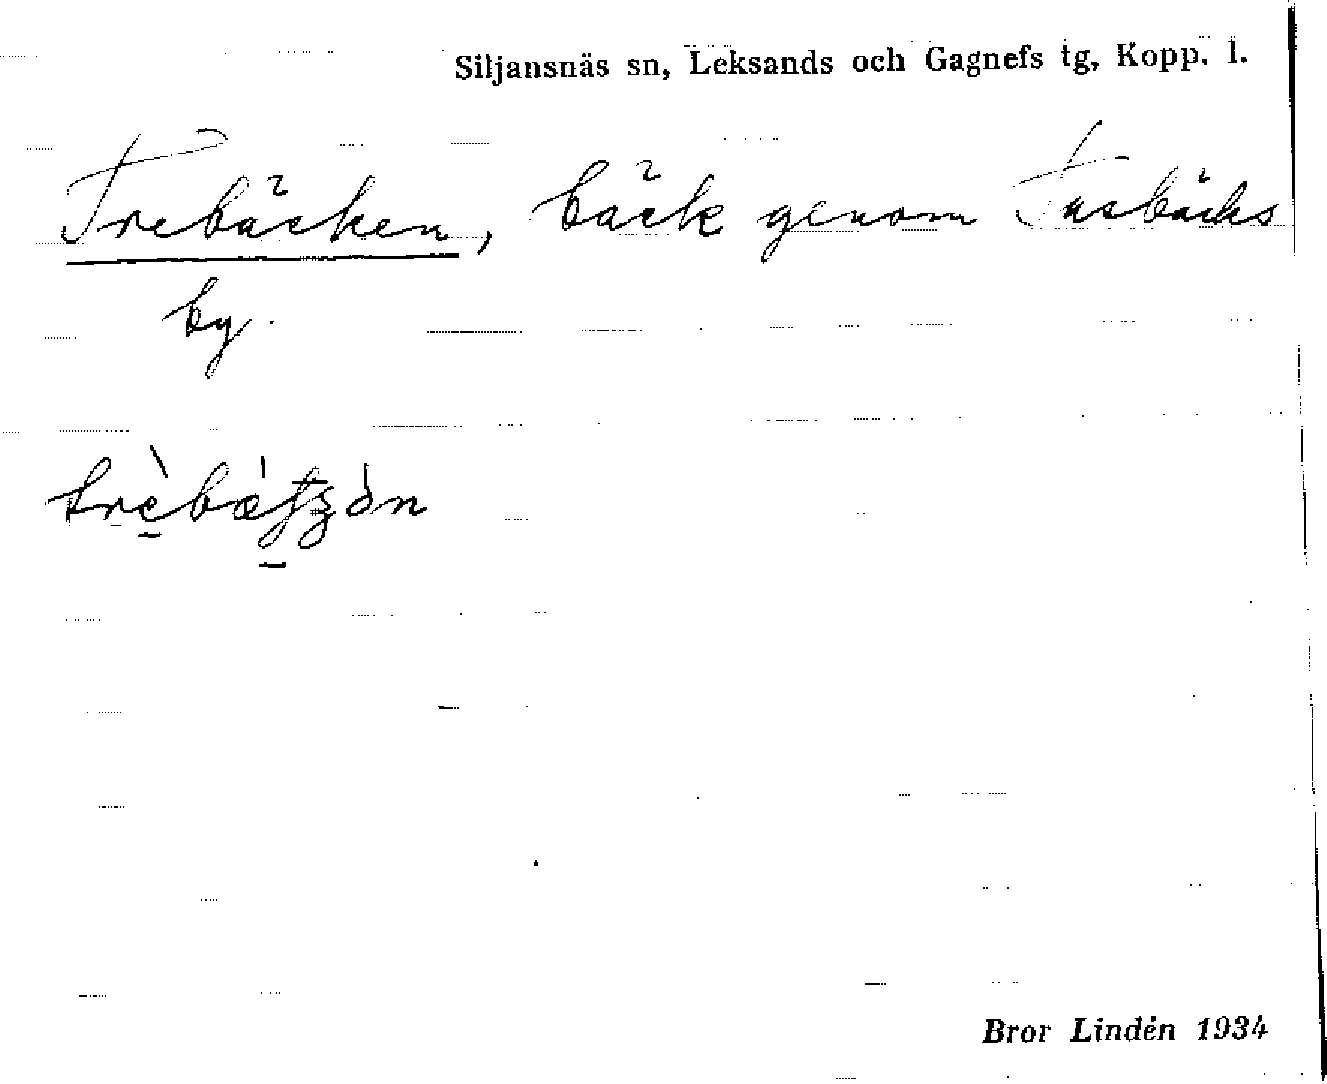 Siljansnäs sn, Leksands och Gagnefs tg, Kopp. l.
Trebäcken, bäck genom
by.
Bror Lindén 1934